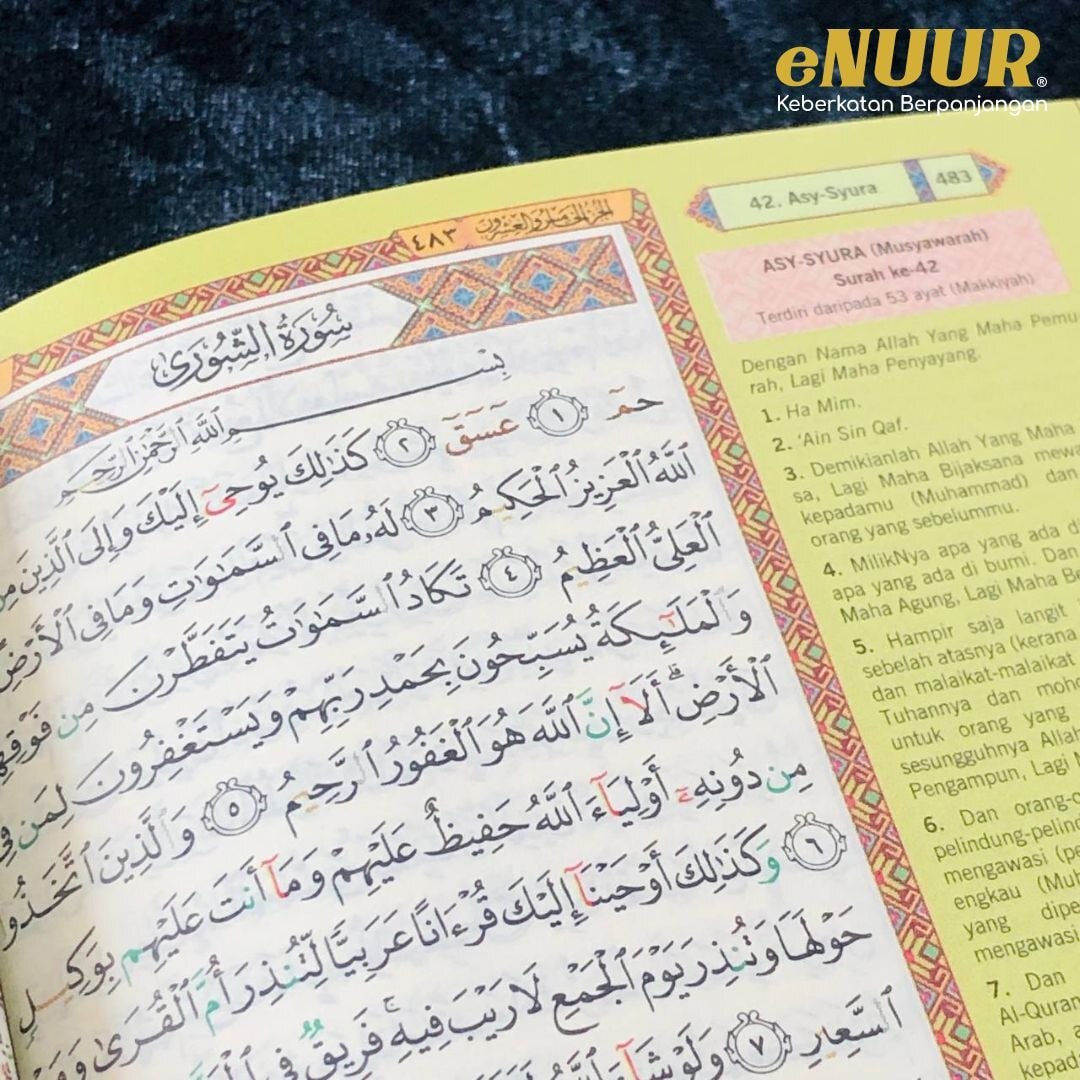 eNUUR®
Keberkatan Berpanjangan
٤٨٣ الجزء الخامس والعشرون
سُورَةُ الشُّورَىٰ
بِسْمِ اللَّهِ الرَّحْمَٰنِ الرَّحِيمِ
حمٓ ١ عٓسٓقٓ ٢ كَذَٰلِكَ يُوحِىٓ إِلَيْكَ وَإِلَى ٱلَّذِينَ مِن
ٱللَّهُ ٱلْعَزِيزُ ٱلْحَكِيمُ ٣ لَهُۥ مَا فِى ٱلسَّمَٰوَٰتِ وَمَا فِى ٱلْأَرْضِ
ٱلْعَلِىُّ ٱلْعَظِيمُ ٤ تَكَادُ ٱلسَّمَٰوَٰتُ يَتَفَطَّرْنَ مِن فَوْقِهِ
وَٱلْمَلَٰٓئِكَةُ يُسَبِّحُونَ بِحَمْدِ رَبِّهِمْ وَيَسْتَغْفِرُونَ لِمَن فِى
ٱلْأَرْضِ ۗ أَلَآ إِنَّ ٱللَّهَ هُوَ ٱلْغَفُورُ ٱلرَّحِيمُ ٥ وَٱلَّذِينَ ٱتَّخَذُوا
مِن دُونِهِۦٓ أَوْلِيَآءَ ٱللَّهُ حَفِيظٌ عَلَيْهِمْ وَمَآ أَنتَ عَلَيْهِم بِوَكِيلٍ
٦ وَكَذَٰلِكَ أَوْحَيْنَآ إِلَيْكَ قُرْءَانًا عَرَبِيًّا لِّتُنذِرَ أُمَّ ٱلْقُرَىٰ وَمَ
حَوْلَهَا وَتُنذِرَ يَوْمَ ٱلْجَمْعِ لَا رَيْبَ فِيهِ ۚ فَرِيقٌ فِى
ٱلسَّعِيرِ ٧ وَلَوْ شَآءَ ٱللَّهُ
42. Asy-Syura 483
ASY-SYURA (Musyawarah)
Surah ke-42
Terdiri daripada 53 ayat (Makkiyah)
Dengan Nama Allah Yang Maha Pemu-
rah, Lagi Maha Penyayang.
1. Ha Mim.
2. 'Ain Sin Qaf.
3. Demikianlah Allah Yang Maha
sa, Lagi Maha Bijaksana mewa
kepadamu (Muhammad) dan
orang yang sebelummu.
4. MilikNya apa yang ada di
apa yang ada di bumi. Dan
Maha Agung, Lagi Maha Be
5. Hampir saja langit
sebelah atasnya (kerana
dan malaikat-malaikat
Tuhannya dan moho
untuk orang yang
sesungguhnya Allah
Pengampun, Lagi M
6. Dan orang-o
pelindung-pelind
mengawasi (pe
engkau (Muh
yang dipe
mengawasi
7. Dan
Al-Quran
Arab, a
kepad